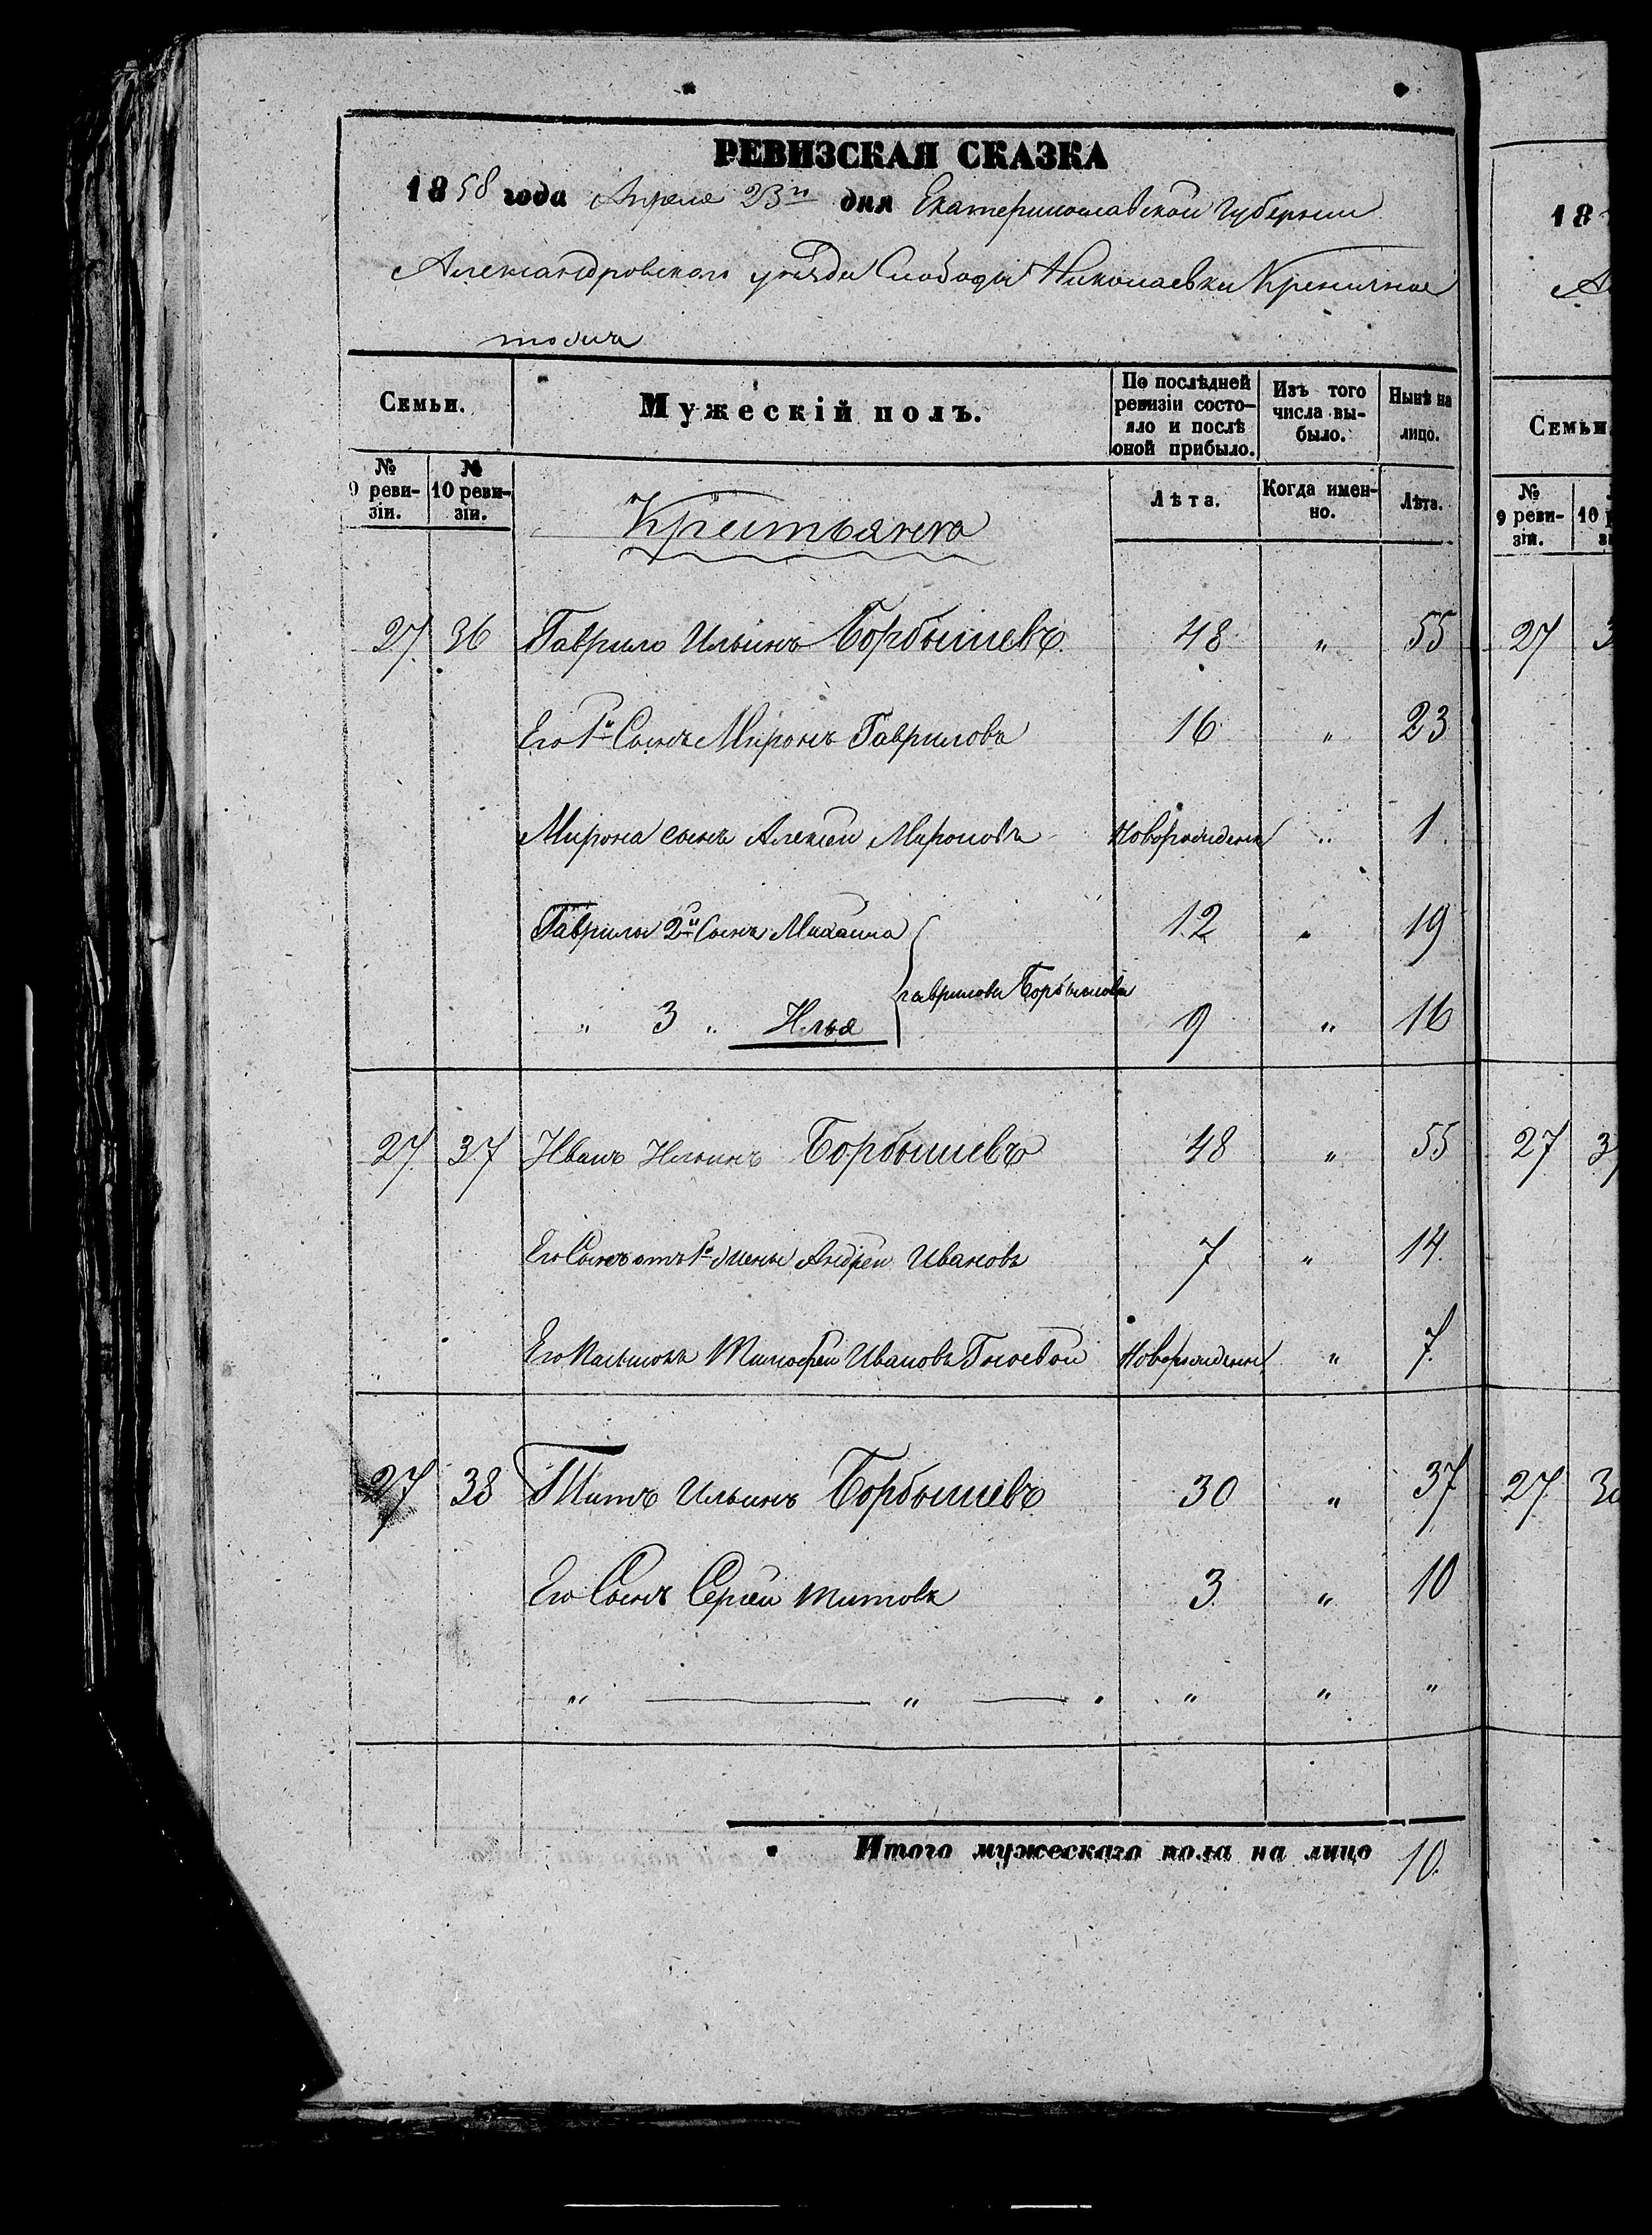 РЕВИЗСКАЯ СКАЗКА
1858 года Апреля 23го дня Екатеринославской Губернии
Александровского уѣзда Слободы Николаевки Креничное
тожъ
Семьи.
Мужескій полъ.
По послѣдней ревизіи состояло и послѣ оной прибыло.
Изъ того числа выбыло.
Нынѣ на лицо.
№ 9 ревизіи.
№ 10 ревизіи.
Лѣта.
Когда именно.
Лѣта.
Крестьяне
27 36 Гаврило Ильинъ Борбышевъ 48 " 55
Его 1й Сынъ Миронъ Гавриловъ 16 " 23
Мирона сынъ Алексѣй Мироновъ Новорожденъ " 1
Гаврилы 2й Сынъ Михаила 12 " 19
гавриловы Борбышевы
" 3 " Илья 9 " 16
27 37 Иванъ Ильинъ Борбышевъ 48 " 55
Его Сынъ отъ 1й жены Андрей Ивановъ 7 " 14
Его Тимофей Ивановъ Новорожденъ " 7
27 38 Титъ Ильинъ Борбышевъ 30 " 37
Его Сынъ Сергей Титовъ 3 " 10
" " " " "
Итого мужескаго пола на лицо 10.
18
А
Семьи
№ 9 ревизіи.
10
27 3
27 37
27 38